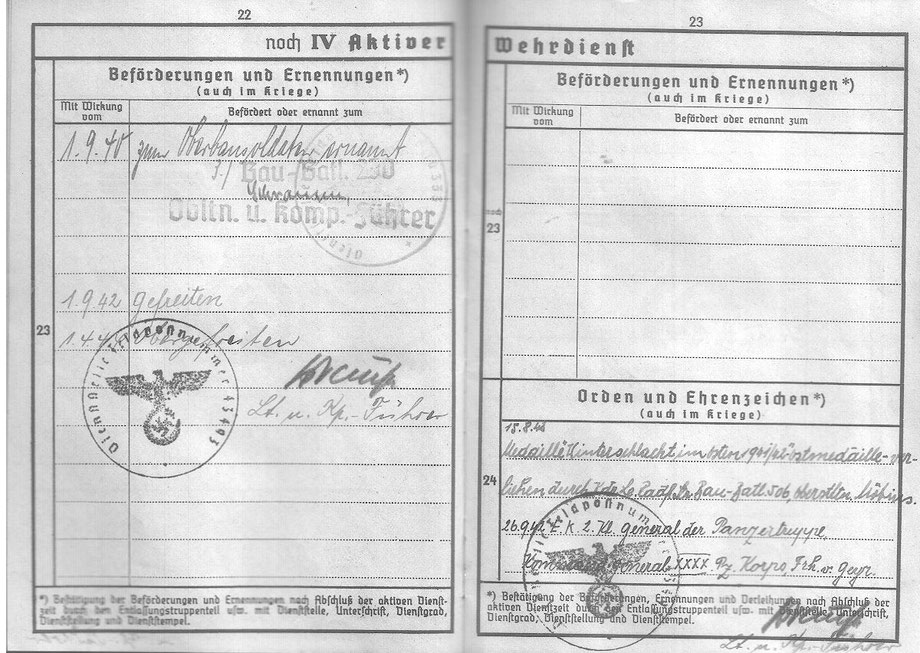 22
noch IV Aktiver
Beförderungen und Ernennungen*)
(auch im Kriege)
Mit Wirkung vom
Befördert oder ernannt zum
1.9.40 zum Oberbausoldaten ernannt
Bau-Batl. 230
Obltn. u. Komp.-Führer
23
1.9.42 Gefreiten
Obergefreiten
Dienststelle Feldpostnummer 43493
Lt. u. Kp.-Führer
*) Bestätigung der Beförderungen und Ernennungen nach Abschluß der aktiven Dienst-
zeit durch den Entlassungstruppenteil usw. mit Dienststelle, Unterschrift, Dienstgrad,
Dienststellung und Dienststempel.
23
Wehrdienst
Beförderungen und Ernennungen*)
(auch im Kriege)
Mit Wirkung vom
Befördert oder ernannt zum
noch 23
Orden und Ehrenzeichen*)
(auch im Kriege)
24
15.8.42
Medaille Winterschlacht im Osten 1941/42 Ostmedaille ver-
liehen durch Bau-Batl. 506, Oberstltn.
26.9.42 E.K. 2. Kl. General der Panzertruppe,
Kommand. General XXXX Pz. Korps, Frh. v. Geyr.
Feldpostnummer
*) Bestätigung der Beförderungen, Ernennungen und Verleihungen nach Abschluß der
aktiven Dienstzeit durch den Entlassungstruppenteil usw. mit Dienststelle, Unterschrift,
Dienstgrad, Dienststellung und Dienststempel.
Lt. u. Kp.-Führer